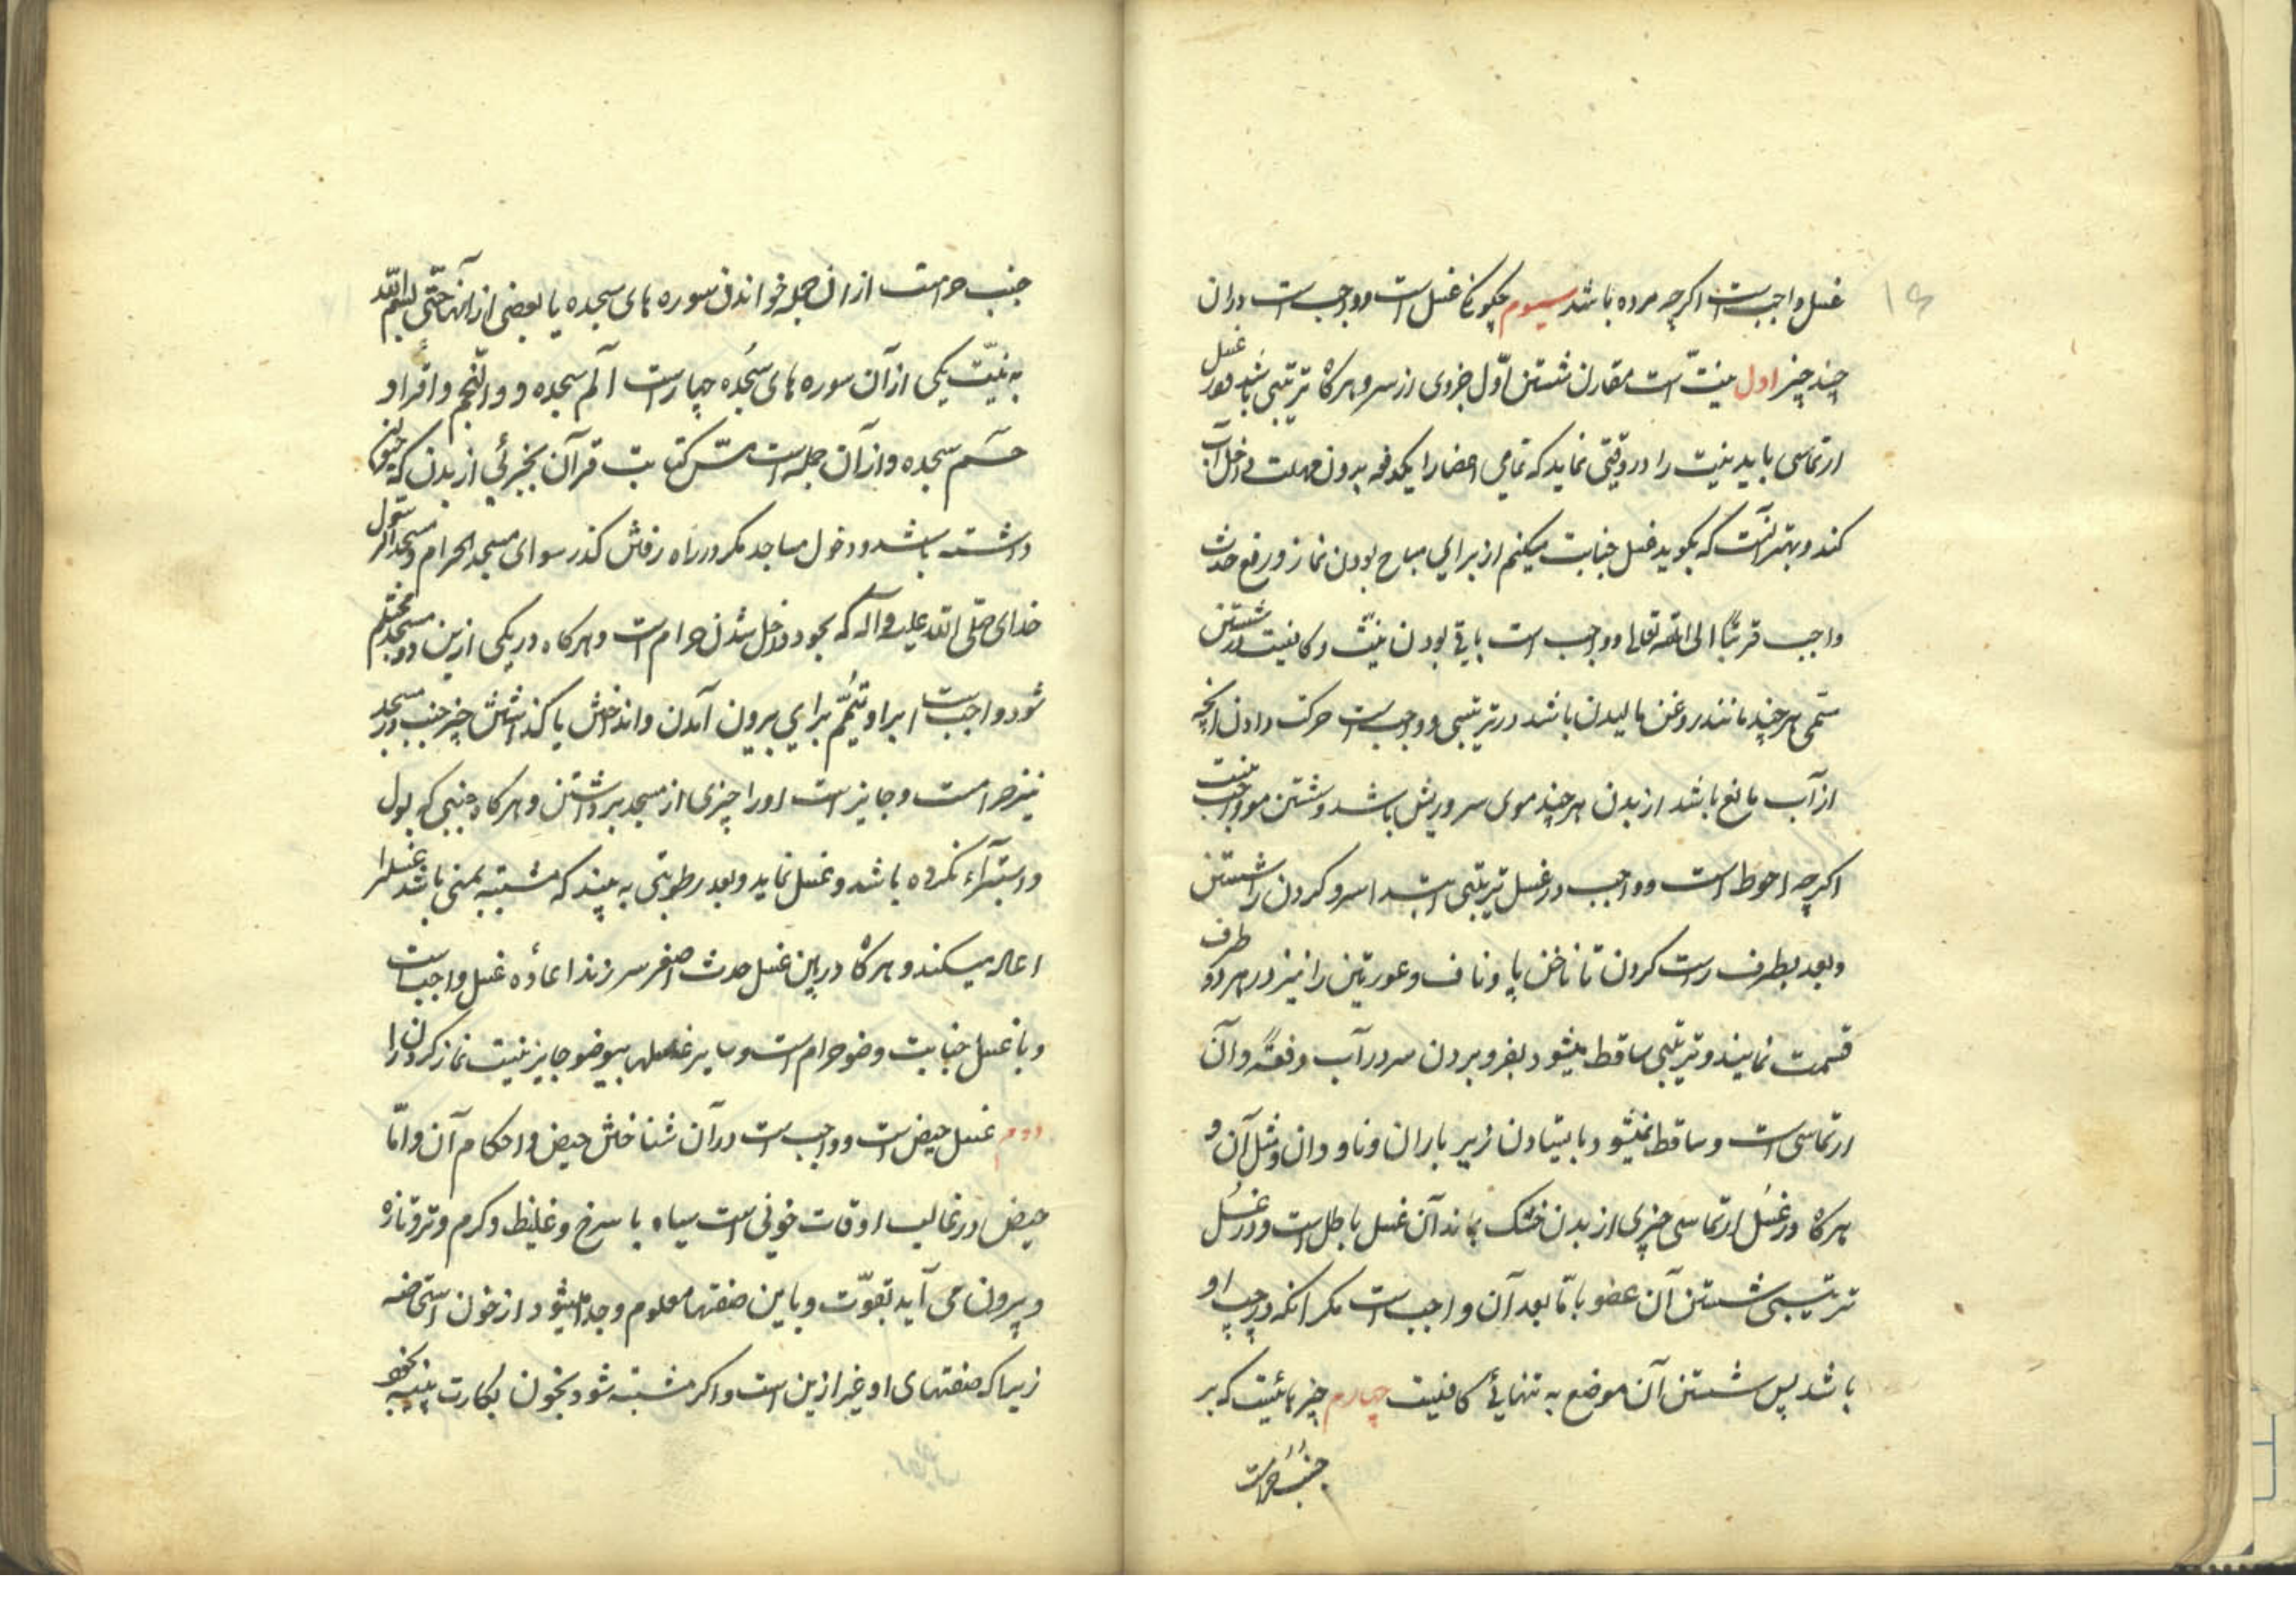 ۱۶
غسل واجبست اکرچه مرده باشد سیوم چکونکی غسل است و واجب است دران
چند چیز اول نیتّ است مقارن شستن اوّل جزوی از سر و هرکاه ترتیبی باشد و در غسل
ارتماسی باید نیت را در وقتی نماید که تمامی اعضا را یکدفعه بدون مهلت داخل آب
کند و بهتر آنست که بکوید غسل جنابت میکنم از برای مباح بودن نماز و رفع حدث
واجب قربتًا الی الله تعالی و واجب است باقی بودن نیتّ و کافیست در شستن
مسمّی هر چند مانند روغن مالیدن باشد در ترتیبی و واجب است حرکت دادن آنچه
از آب مانع باشد از بدن هر چند موی سر و ریش باشد و شستن مو واجب نیست
اکرچه احوط است و واجب در غسل ترتیبی ابتدا سر و کردن را شستن
و بعد بطرف راست کردن تا ناخن پا و ناف و عورتین را نیز در هر دو طرف
قسمت نمایند و ترتیبی ساقط میشود بفرو بردن سر در آب دفعةً و آن
ارتماسی است و ساقط نمیشود با یستادن زیر باران و ناودان و مثل آن و
هرکاه در غسُل ارتماسی چیزی از بدن خشک بماند آن غسل باطل است و در غسُل
ترتیبی شستن آن عضو با مّا بعد آن واجب است مکر انکه در چپ او
باشد پس شستن آن موضع به تنهائی کافیست چهارم چیزهائیست که بر
جنب حرامست
جنب حرامست از ان جمله خواندن سوره های سجده یا بعضی از آنها حتّی بسم الله
به نیتّ یکی از آن سوره های سَجُده چهار است الٓم سجده و والنّجم و اقراء و
حٓم سجده و از آن جمله است مسّ کتابت قرآن بجزئی از بدن که حیوة
داشته باشد و دخول مساجد مکر در راه رفتن کذر سوای مسجد الحرام و مسجد رسول
خدای صلّی الله علیه و آله که بمجرد داخل شدن حرام است و هرکاه در یکی ازین دو مسجد محتلم
شود واجبست بر او تیمّم برای بیرون آمدن و انداختن یا کذاشتن چیز جنب در مسجد
نیز حرامست و جایز است او را چیزی از مسجد برداشتن و هرکاه جنبی که بول
و استبرآء نکرده باشد و غسل نماید و بعد رطوبتی به بیند که مشتبه بمنی باشد غسل را
اعاده میکند و هرکاه در بین غسل حدث اصغر سر زند اعادٔه غسل واجب است
و با غسل جنابت وضو حرام است و بسایر غسلها بیوضو جایز نیست نماز کردن را
دوم غسل حیض است و واجب است در آن شناختن حیض و احکام آن و امّا
حیض در غالب اوقات خونی است سیاه یا سرخ و غلیظ و کرم و تر و تازه
و بیرون می آید بقوّت و باین صفتها معلوم و جدا میشود از خون استحاضه
زیرا که صفتهای او غیر ازین است و اکر مشتبه شود بخون بکارت پنبه